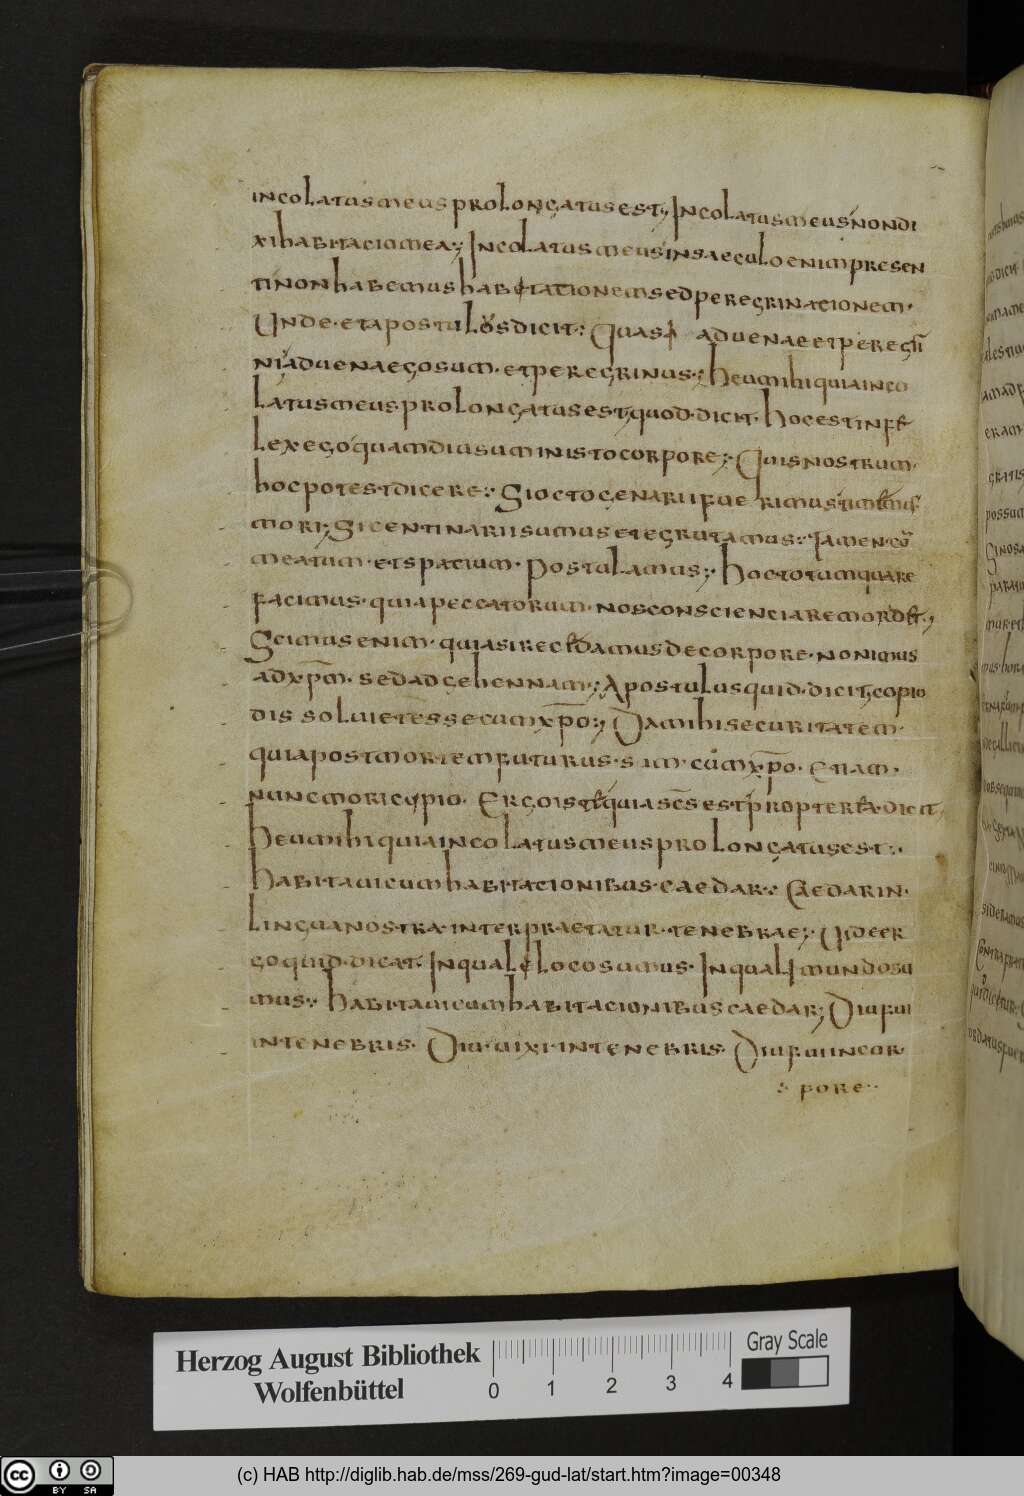 incolatus meus prolongatus est; Incolatus meus nondi
xi habitacio mea; Incolatus meus in saeculo enim presen
ti non habemus habitationem sed peregrinacionem.
Unde. et apostulus dicit: Quasi aduenae et peregri
ni; aduena ego sum. et peregrinus; heu mihi quia inco
latus meus prolongatus est, quod. dicit. hoc est infe
lex ego quamdiu sum in isto corpore; Quis nostrum.
hoc potest dicere: Si octogenarii fuerimus
mori; Si centinarii sumus et egrutamus: Tamen. cō
meatum. et spatium. postulamus; hoc totum quare
facimus. quia peccatorum. nos consciencia remordet;
Scimus enim. quia si recedamus de corpore. non imus
ad xp̄m. sed ad gehennam; Apostulus quid. dicit, copio
dissolui et esse cum xp̄o; Da mihi securitatem.
quia post mortem futurus. sim. cum xp̄o. Etiam.
nunc mori cupio. Ergo iste quia sc̄s est propterea. dicit,
heu mihi quia incolatus meus prolongatus est:
habitaui cum habitacionibus. caedar: Caedar in.
lingua nostra. interpraetatur. tenebrae; Uide er
go quid. dicat. In quale loco sumus. In quali mundo su
mus: habitaui cum habitacionibus caedar; Diu fui
in tenebris. Diu. uixi. in tenebris. Diu fui in cor.
pore
Herzog August Bibliothek
Wolfenbüttel
0 1 2 3 4
Gray Scale
cc BY SA
(c) HAB http://diglib.hab.de/mss/269-gud-lat/start.htm?image=00348